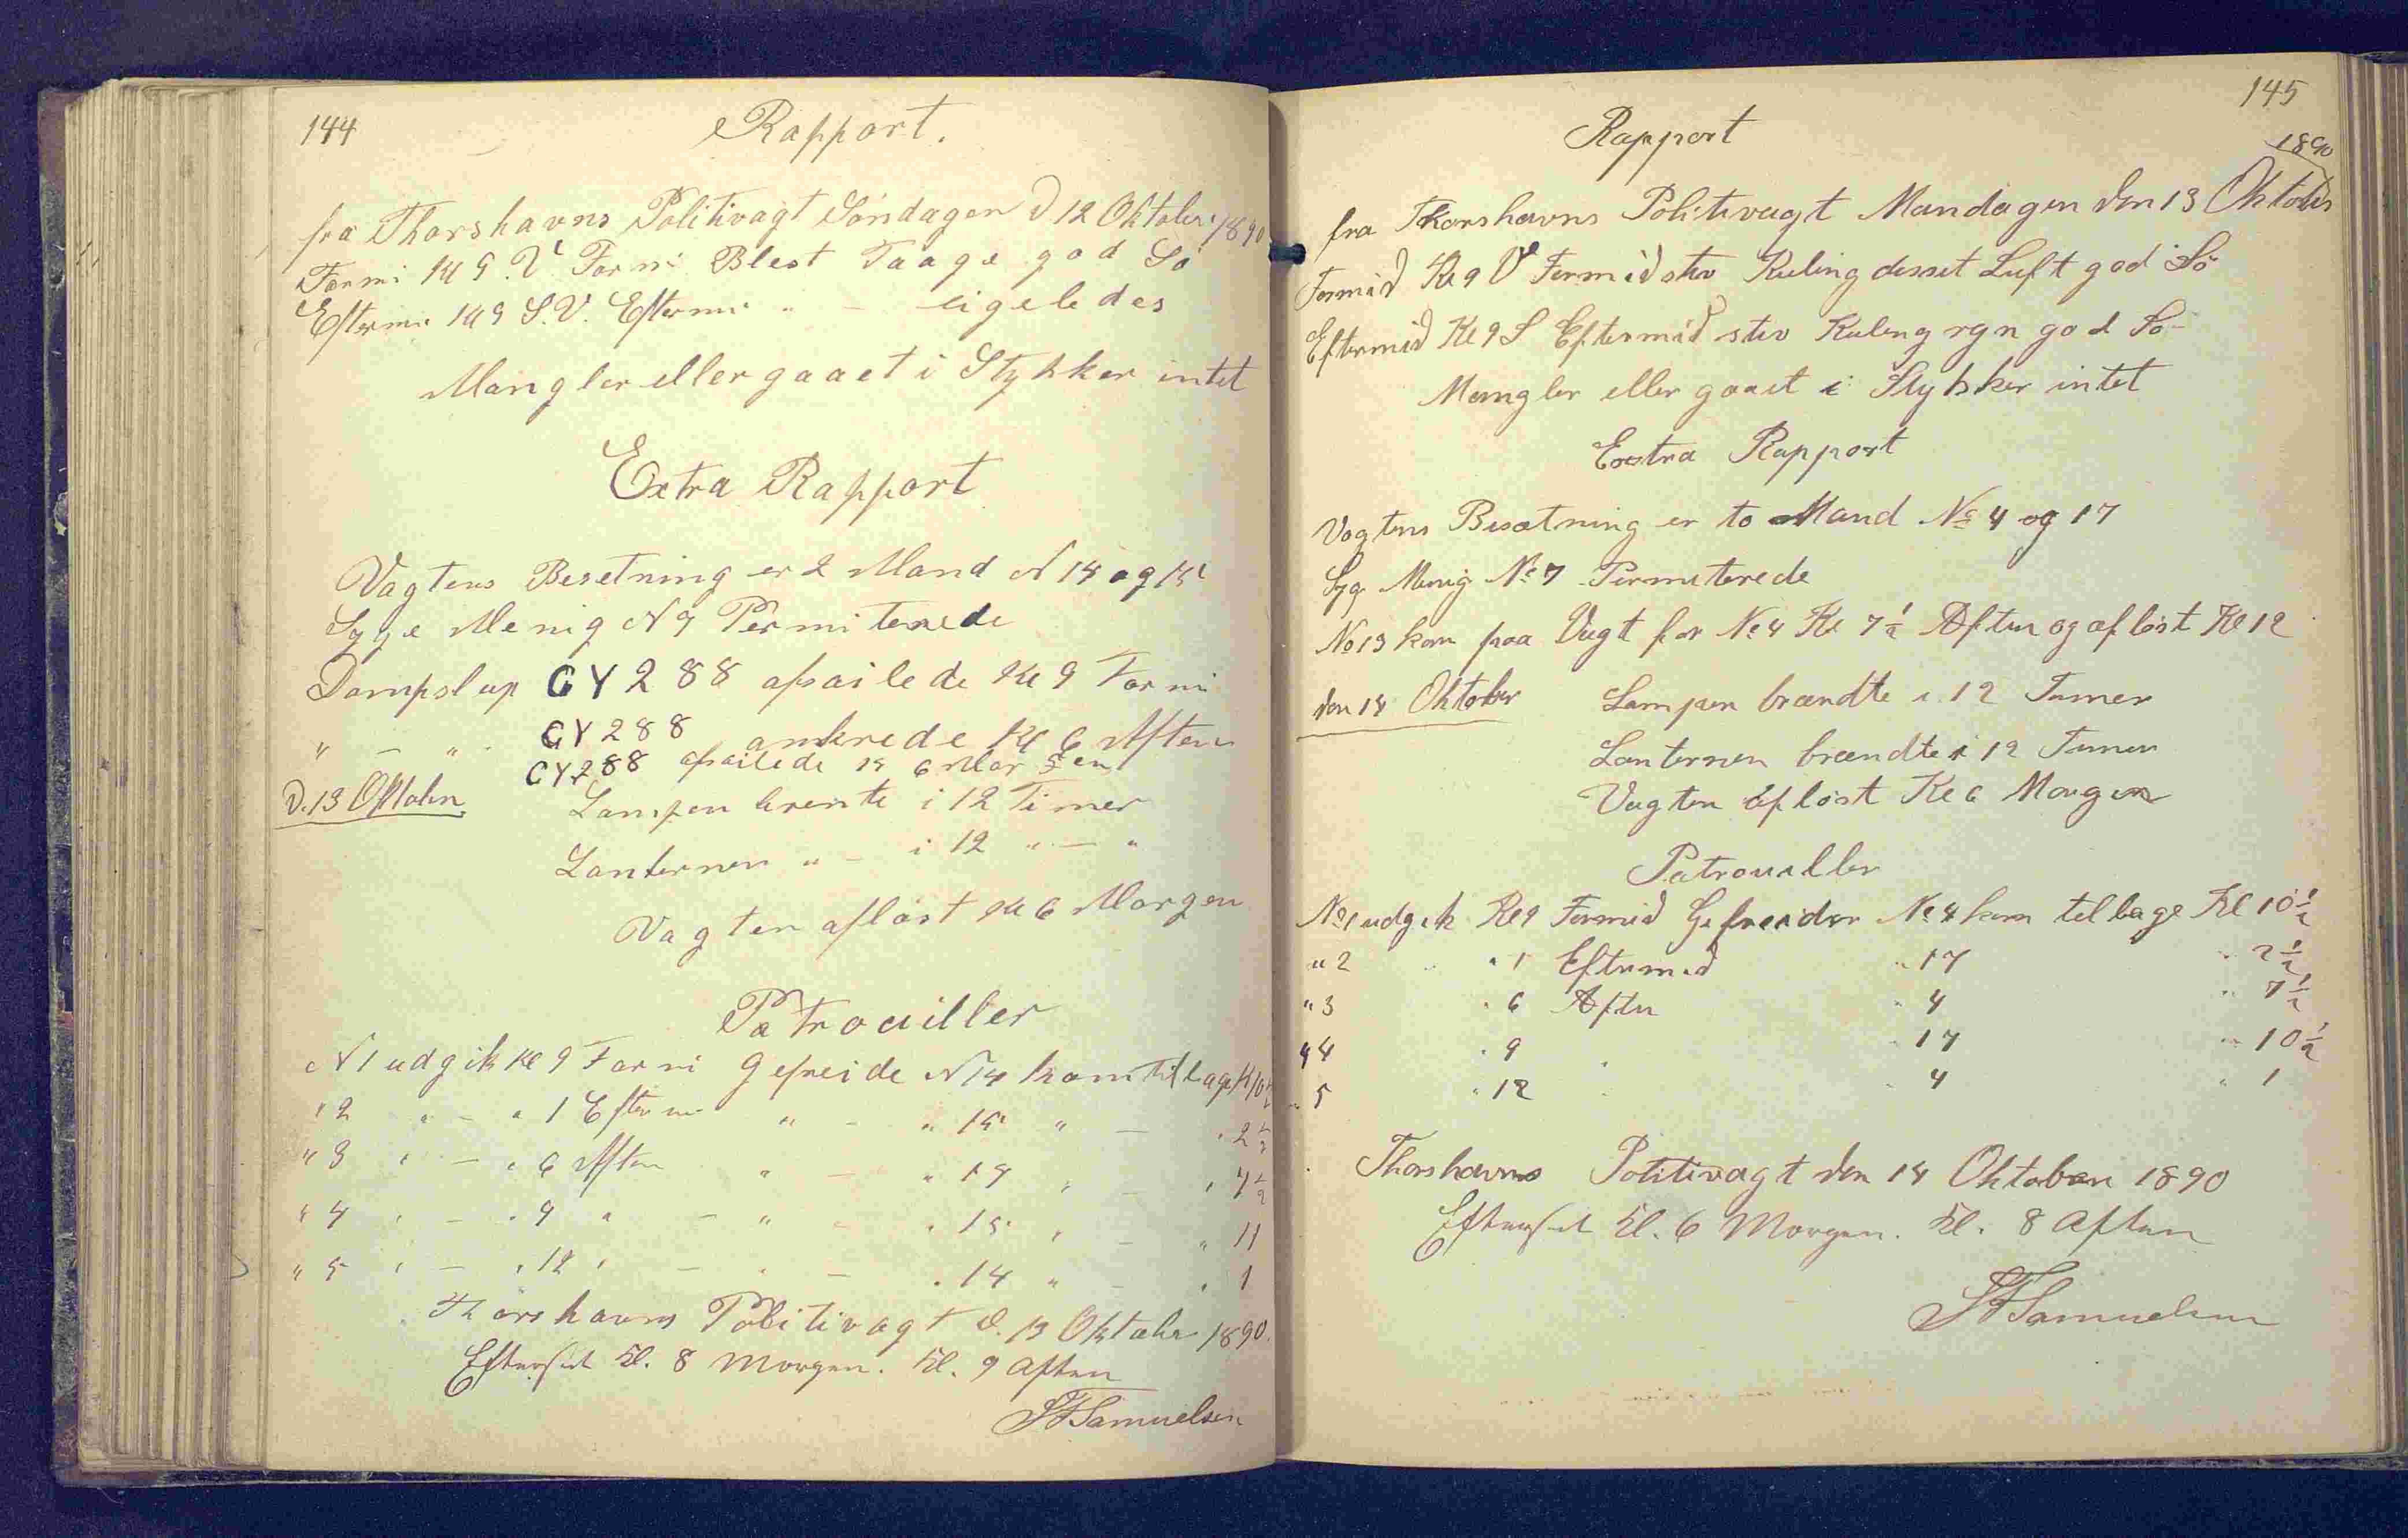 144
Rapport.
fra Thorshavns Politivagt Söndagen d 12 Oktober 1890
Formi Kl 9. V. Formi Blest Taage god Sö
Eftermi Kl 9 S.V. Eftermi " — ligeledes
Mangler eller gaaet i Stykker intet
Extra Rapport
Vagtens Besetning er 2 Mand N 14 og 15
Syge Menig N 7 Permiterede
Dampslup GY 288 afsailede Kl 9 Formi
" — " GY 288 ankrede Kl 6 Aften
GY 288 afsailede Kl 6 Morgen
D. 13 Oktober
Lampen brente i 12 Timer
Lanternen " — i 12 " — "
Vagten aflöst Kl 6 Morgen
Patrouiller
N 1 udgik Kl 9 Formi Gefreide N 14 kom tilbage Kl 10 1/2
" 2 " — " 1 Eftermi " — " 15 " — " 2 1/2
" 3 " — " 6 Aften " — " 14 " — " 7 1/2
" 4 " — " 9 " — " — " 15 " — " 11
" 5 " — " 12 " — " — " 14 " — " 1
Thorshavns Politivagt d. 13 Oktober 1890.
Efterset Kl. 8 Morgen. Kl. 9 Aften
SFSamuelsen
145
Rapport
1890
fra Thorshavns Politivagt Mandagen den 13 Oktober
Formid Kl 9 V Formid stiv Kuling disset Luft god Sö
Eftermid Kl 9 S Eftermid stiv Kuling rgn god Sö
Mangler eller gaaet i Stykker intet
Exstra Rapport
Vagtens Besætning er to Mand No 4 og 17
Syg Menig No 7 Permiterede
No 13 kom paa Vagt for No 4 Kl 7 1/2 Aften og aflöst Kl 12
den 14 Oktober Lampen brændte i 12 Timer
Lanternen brændte i 12 Timer
Vagten aflöst Kl 6 Morgen
Patrouiller
No 1 udgik Kl 9 Formid Gefreider No 4 kom tilbage Kl 10 1/2
" 2 " 1 Eftermid " 17 " 2 1/2
" 3 " 6 Aften " 4 " 7 1/2
" 4 " 9 " " 17 " 10 1/2
" 5 " 12 " " 4 " 1
Thorshavns Politivagt den 14 Oktober 1890
Efterset Kl. 6 Morgen. Kl. 8 Aften
SFSamuelsen